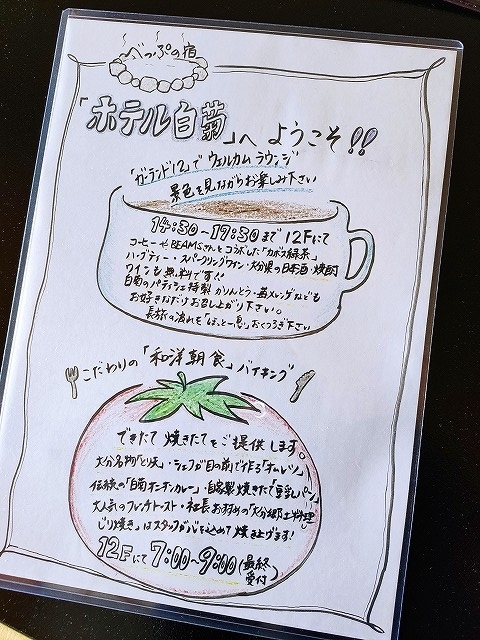 べっぷの宿
「ホテル白菊」へ ようこそ!!
「ガーランド12」で ウェルカム ラウンジ
景色を見ながらお楽しみ下さい
14:30～17:30まで 12Fにて
コーヒーやBEAMSさんとコラボした「カボス緑茶」
ハーブティー・スパークリングワイン・大分県の日本酒・焼酎
ワインも無料です!!
白菊のパティシェ特製 かりんとう・苺メレンゲなども
お好きなだけお召し上がり下さい。
長旅の疲れを「ほっと一息」おくつろぎ下さい
こだわりの「和洋朝食」バイキング
できたて 焼きたてをご提供します。
大分名物「とり天」・シェフが目の前で作る「オムレツ」
伝統の「白菊オニオンカレー」・自家製焼きたて「豆乳パン」
大人気のフレンチトースト・社長おすすめの「大分郷土料理
じり焼き」はスタッフが心を込めて焼き上げます!
12Fにて 7:00～9:00(最終受付)